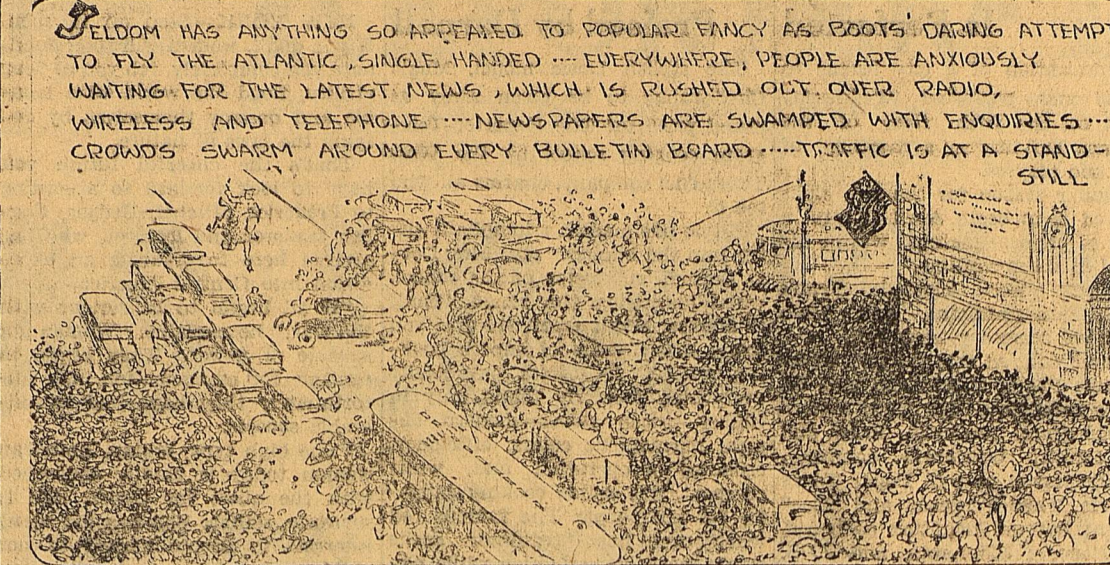 SELDOM HAS ANYTHING SO APPEALED TO POPULAR FANCY AS BOOTS' DARING ATTEMP
TO FLY THE ATLANTIC, SINGLE HANDED .... EVERYWHERE, PEOPLE ARE ANXIOUSLY
WAITING FOR THE LATEST NEWS, WHICH IS RUSHED OUT OVER RADIO,
WIRELESS AND TELEPHONE .... NEWSPAPERS ARE SWAMPED WITH ENQUIRIES ...
CROWDS SWARM AROUND EVERY BULLETIN BOARD ..... TRAFFIC IS AT A STAND-
STILL